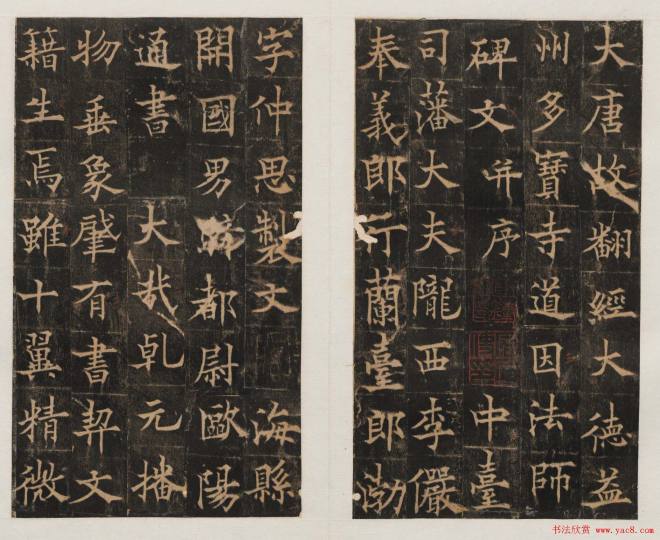 大唐故翻經大德益
州多寶寺道因法師
碑文并序 中臺
司藩大夫隴西李儼
奉義郎行蘭臺郎渤
字仲思製文 海縣
開國男都尉歐陽
通書 大哉乾元播
物垂象肇有書契文
籍生焉雖十翼精微
书法欣赏 www.yac8.com